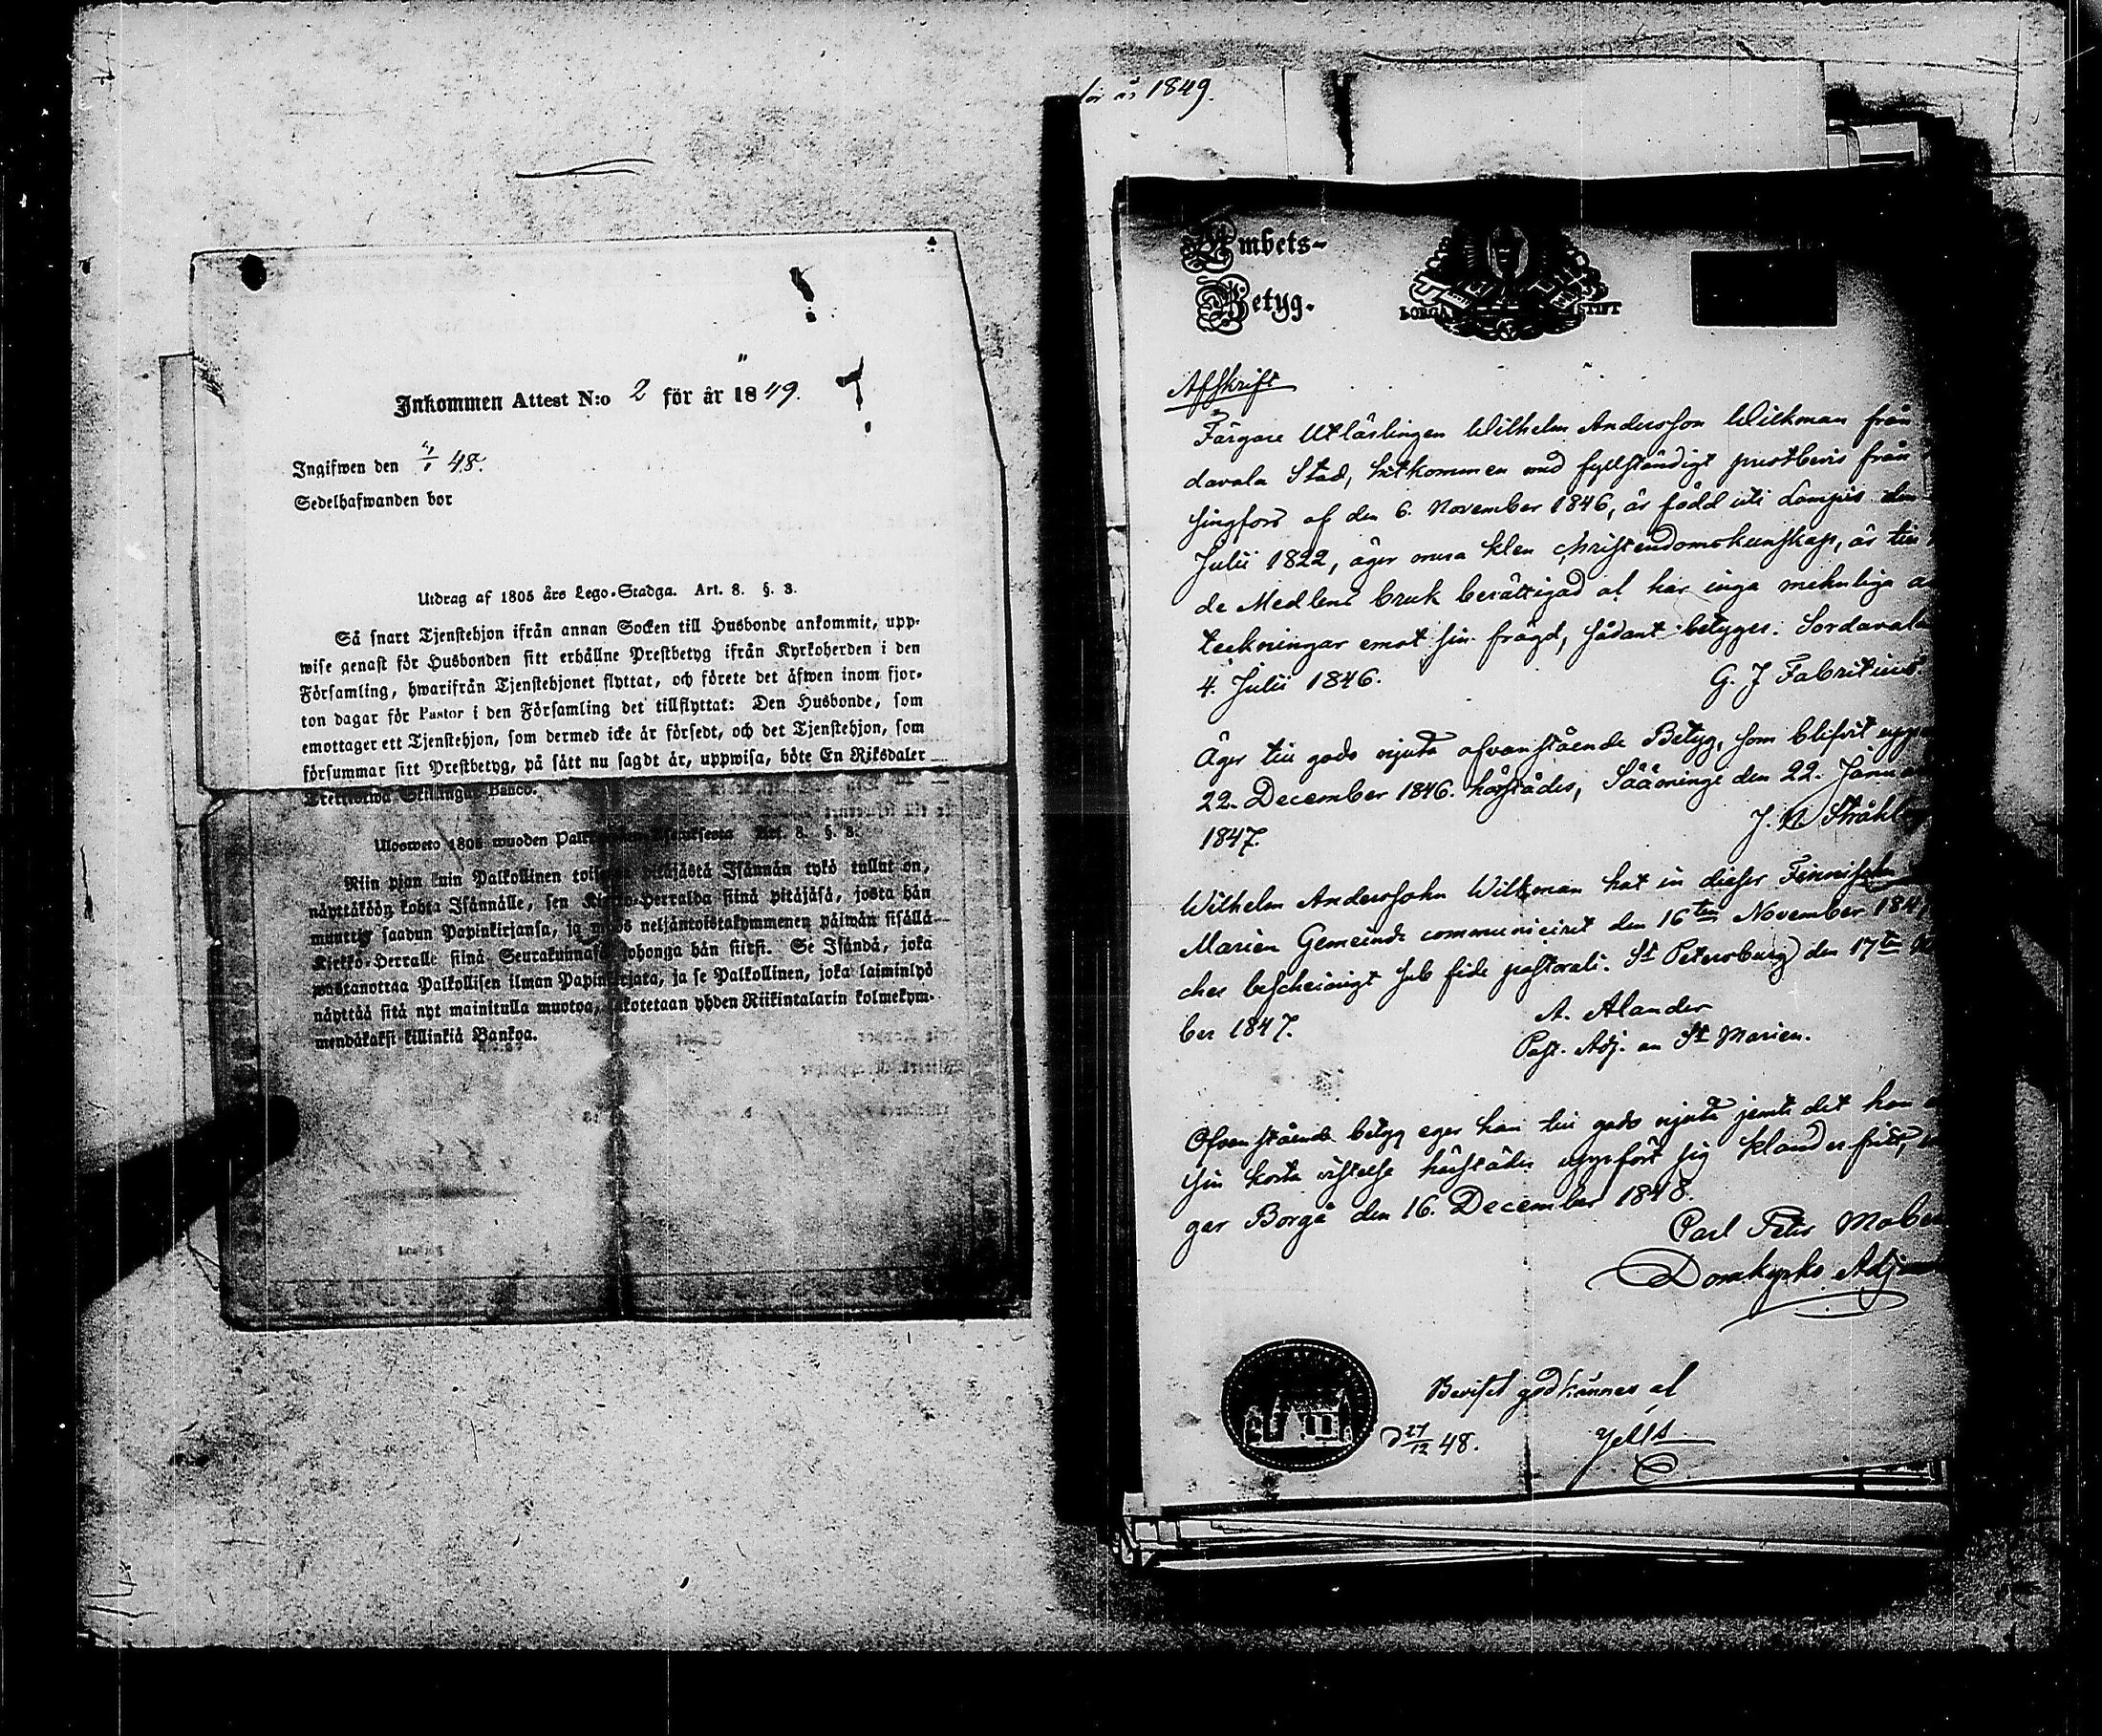 för år 1849.
Inkommen Attest N:o 2 för år 1849.
Ingifwen den 48.
Sedelhafwanden bor
Utdrag af 1805 års Lego-Stadga. Art. 8. §. 3.
Så snart Tjenstehjon ifrån annan Socken till Husbonde ankommit, upp-
wise genast för Husbonden sitt erhållne Prestbetyg ifrån Kyrkoherden i den
Församling, hwarifrån Tjenstehjonet flyttat, och förete det äfwen inom fjor-
ton dagar för Pastor i den Församling det tillflyttat: Den Husbonde, som
emottager ett Tjenstehjon, som dermed icke är försedt, och det Tjenstehjon, som
försummar sitt Prestbetyg, på sätt nu sagdt är, uppwisa, böte En Riksdaler
Trettiotwå Skillingar Banco.
Ulosweto 1805 wuoden Art. 8. §. 3.
Niin pian kuin Palkollinen pitäjästä Isännän tykö tullut on,
näyttäköön kohta Isännälle, sen Kirkko-Herralda siinä pitäjäsä, josta hän
muuttis saadun Papinkirjansa, ja myös neljäntoistakymmenen päiwän sisällä
Kirkko-Herralle siinä Seurakunnasa johonga hän siirsi. Se Isändä, joka
wastanottaa Palkollisen ilman Papinkirjata, ja se Palkollinen, joka laiminlyö
näyttää sitä nyt mainitulla muotoa, sakotetaan yhden Riikintalarin kolmekym-
mendäkaksi killinkiä Bankoa.
Embets-
Betyg.
BORGÅ STIFT
Afskrift
Färgare Utlärlingen Wilhelm Andersson Wilkman från
davala Stad, hitkommen med fullständigt prestbevis från
singfors af den 6. November 1846, är född uti Lampis den
Julii 1822, äger klen christendomskunskap, är till
de Medlens bruk berättigad at har inga mehnliga
teckningar emot sin frägd, sådant betyges. Sordavala
4. Julii 1846. G. J Fabritius.
Äger till godo njuta ofvanstående Betyg, som blifvit
22. December 1846. härstädes, Sääminge den 22.
1847. J. Ståhl
Wilhelm Anderssohn Wilkman hat in dieser Finnischen
Marien Gemeinde communiciret den 16ten November
ches bescheinigt sub fide pastorali. St Petersburg den 17ten
ber 1847. A. Alander
Past. Adj. an St Marien.
Ofvanstående betyg eger han till godo njuta jemte det han
sin korta vistelse härstädes uppfört sig klanderfritt,
gar Borgå den 16. December 1848.
Carl Peter
Domkyrko Adj
Beviset godkännes af
d 27/12 48.